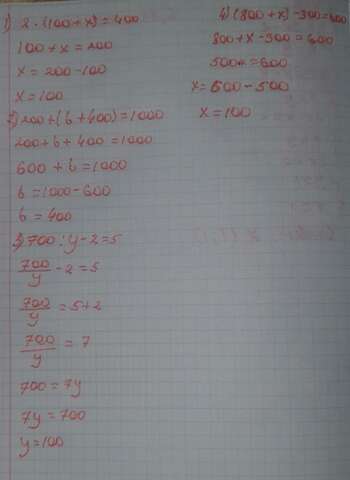 1) 2·(100+x)=400
100+x=200
x=200-100
x=100
2) 200+(b+400)=1000
200+b+400=1000
600+b=1000
b=1000-600
b=400
3) 700:y-2=5
700/y -2=5
700/y =5+2
700/y =7
700=7y
7y=700
y=100
4) (800+x)-300=600
800+x-300=600
x=600-500
x=100